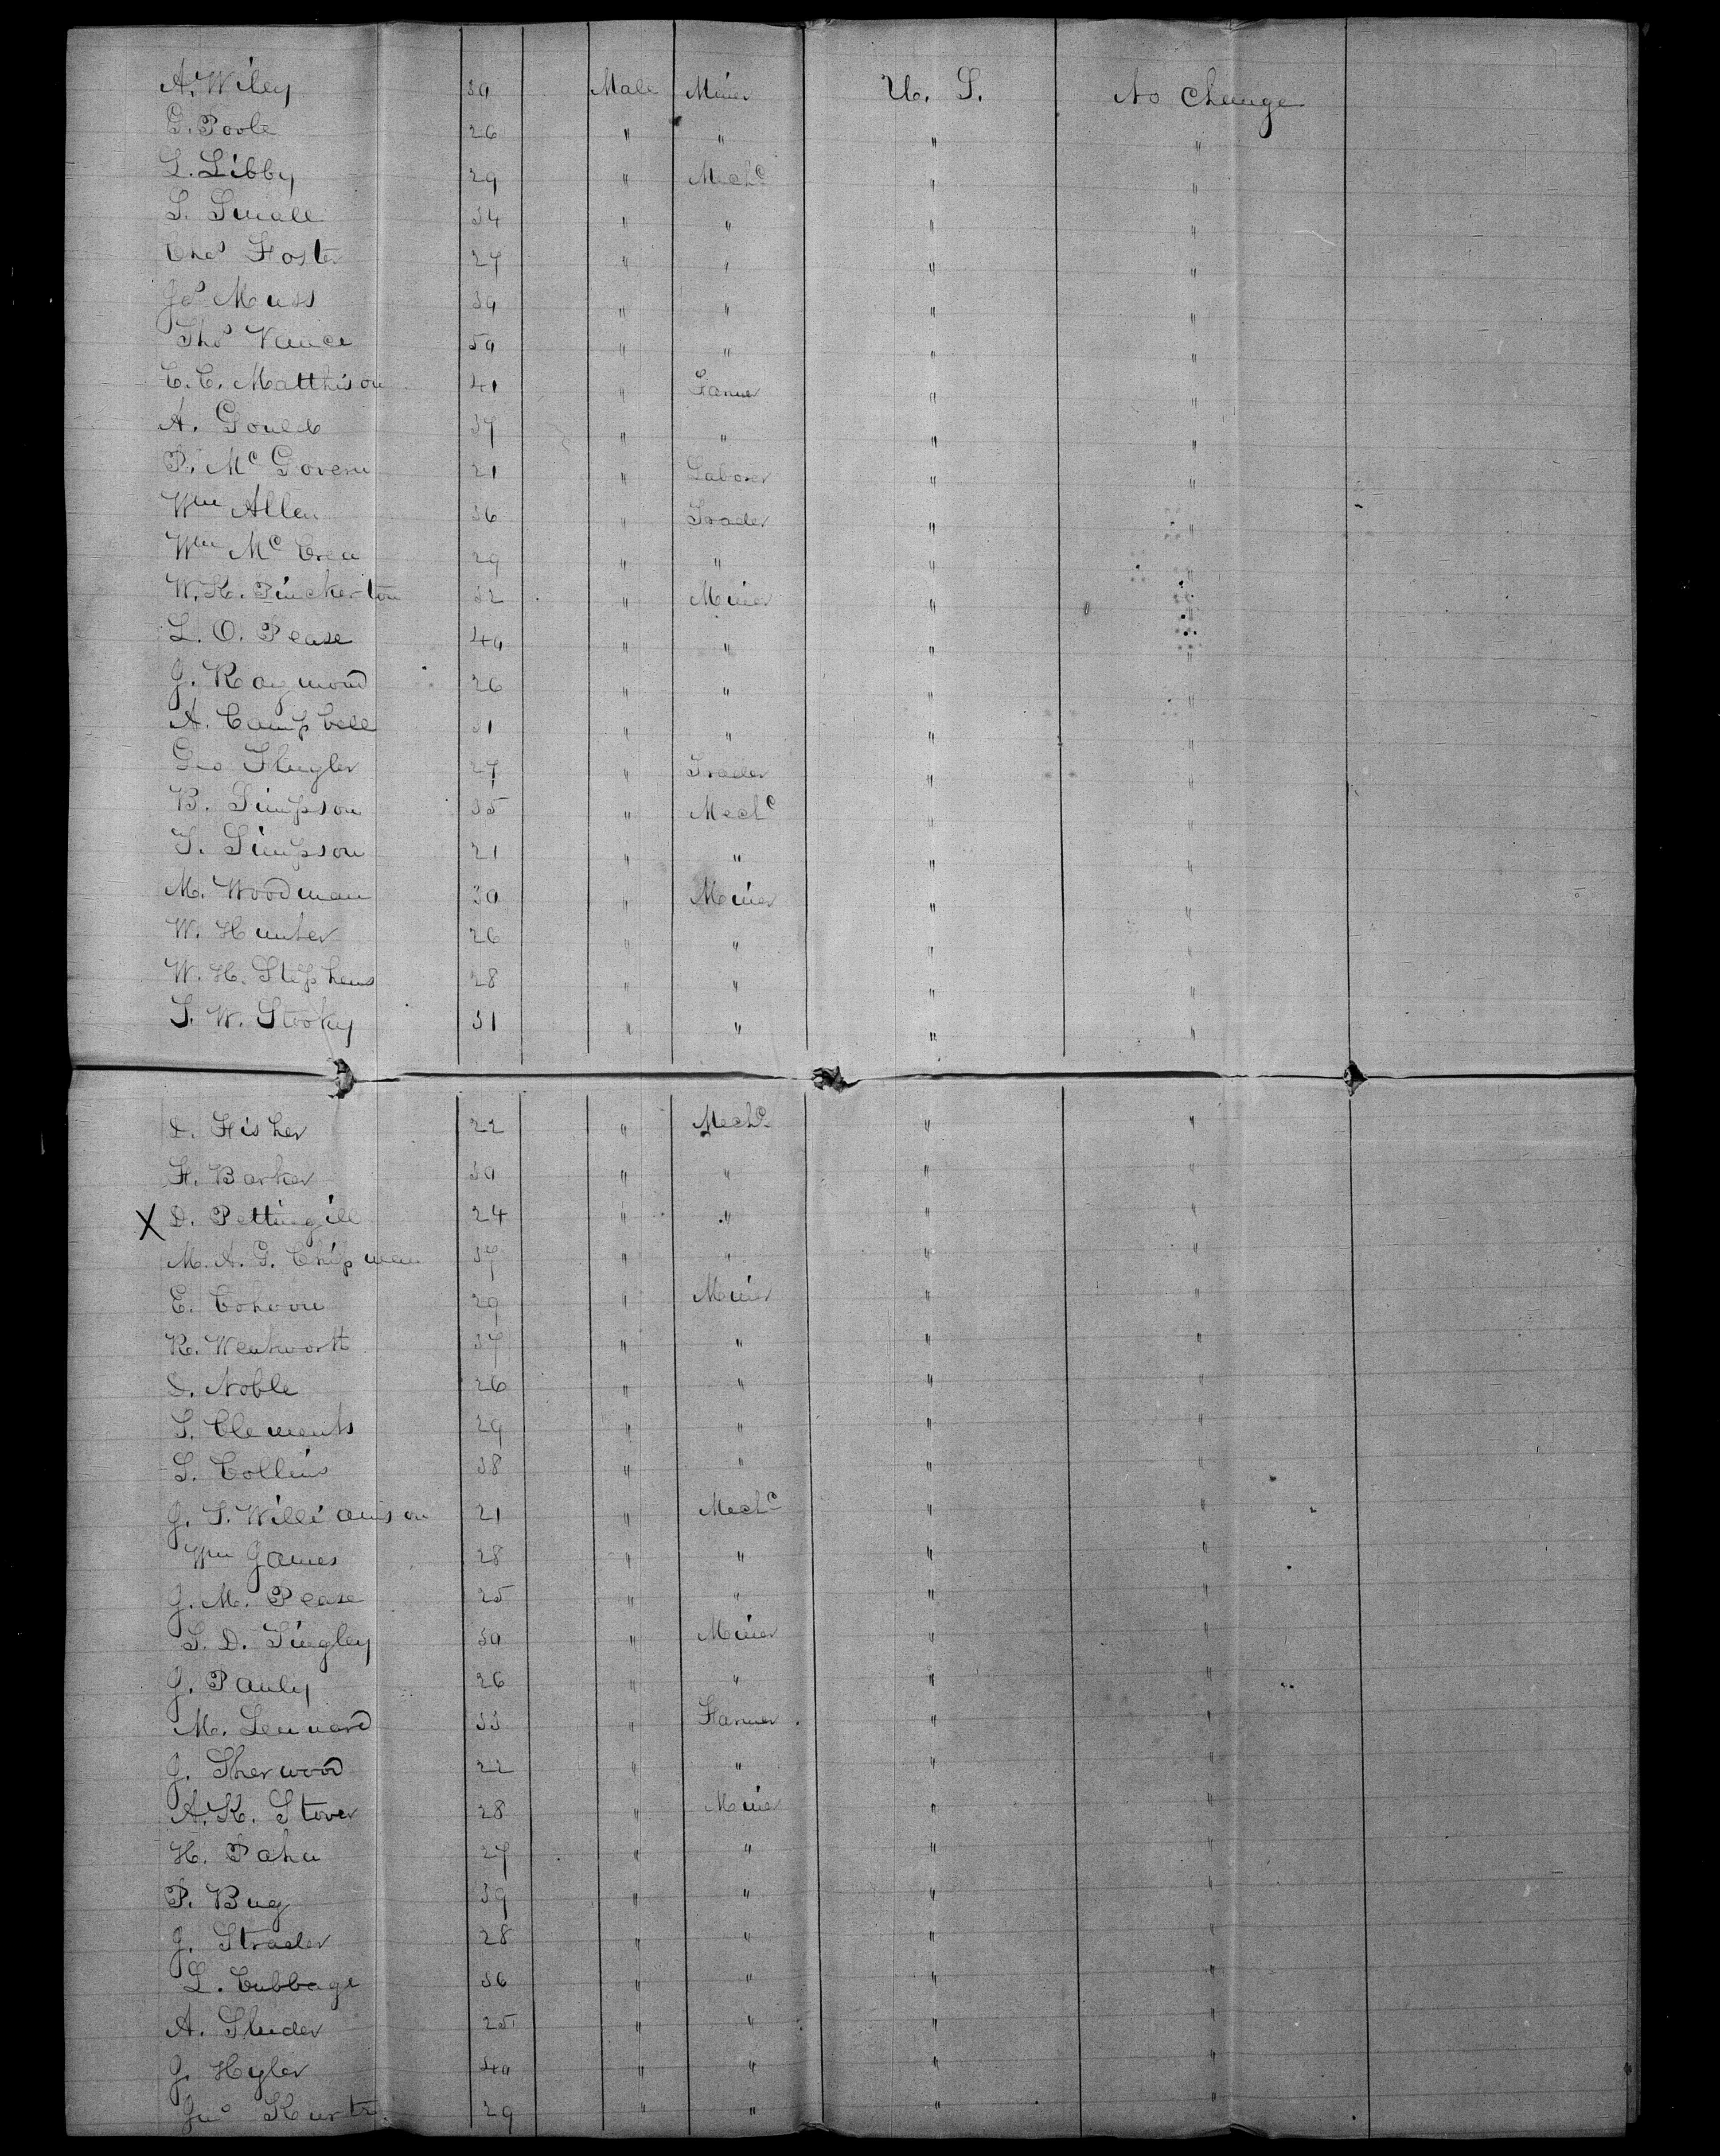 A. Wiley 30 Male Miner U. S. No Change
G. Poole 26 " " " "
L. Libby 29 " Mechc " "
S. Small 34 " " " "
Chas Foster 27 " " " "
Jas Muss 30 " " " "
Thos Vance 50 " " " "
C. C. Matthison 41 " Farmer " "
A. Gould 37 " " " "
P. Mc Govern 21 " Laborer " "
Wm Allen 36 " Trader " "
Wm Mc Crea 29 " " " "
W. K. Pinckerton 32 " Miner " "
L. O. Pease 40 " " " "
J. Raymond 26 " " " "
A. Campbell 31 " " " "
Geo Flugler 27 " Trader " "
B. Simpson 35 " Mechc " "
T. Simpson 21 " " " "
M. Woodman 30 " Miner " "
W. Hunter 26 " " " "
W. H. Stephens 28 " " " "
S. W. Stooky 31 " " " "
D. Fisher 22 " Mechc " "
H. Barker 30 " " " "
X D. Pettingill 24 " " " "
M. A. G. Chipman 37 " " " "
E. Cohoon 29 " Miner " "
R. Wentworth 37 " " " "
D. Noble 26 " " " "
S. Clements 29 " " " "
S. Collins 38 " " " "
J. S. Williamson 21 " Mechc " "
Wm James 28 " " " "
J. M. Pease 25 " " " "
S. D. Tingley 30 " Miner " "
J. Pauly 26 " " " "
M. Lennard 33 " Farmer " "
J. Sherwood 22 " " " "
A. K. Stover 28 " Miner " "
H. Pahn 27 " " " "
P. Bug 39 " " " "
J. Strader 28 " " " "
L. Cubbage 36 " " " "
A. Sluder 25 " " " "
J. Hyler 40 " " " "
Jno Kurtz 29 " " " "